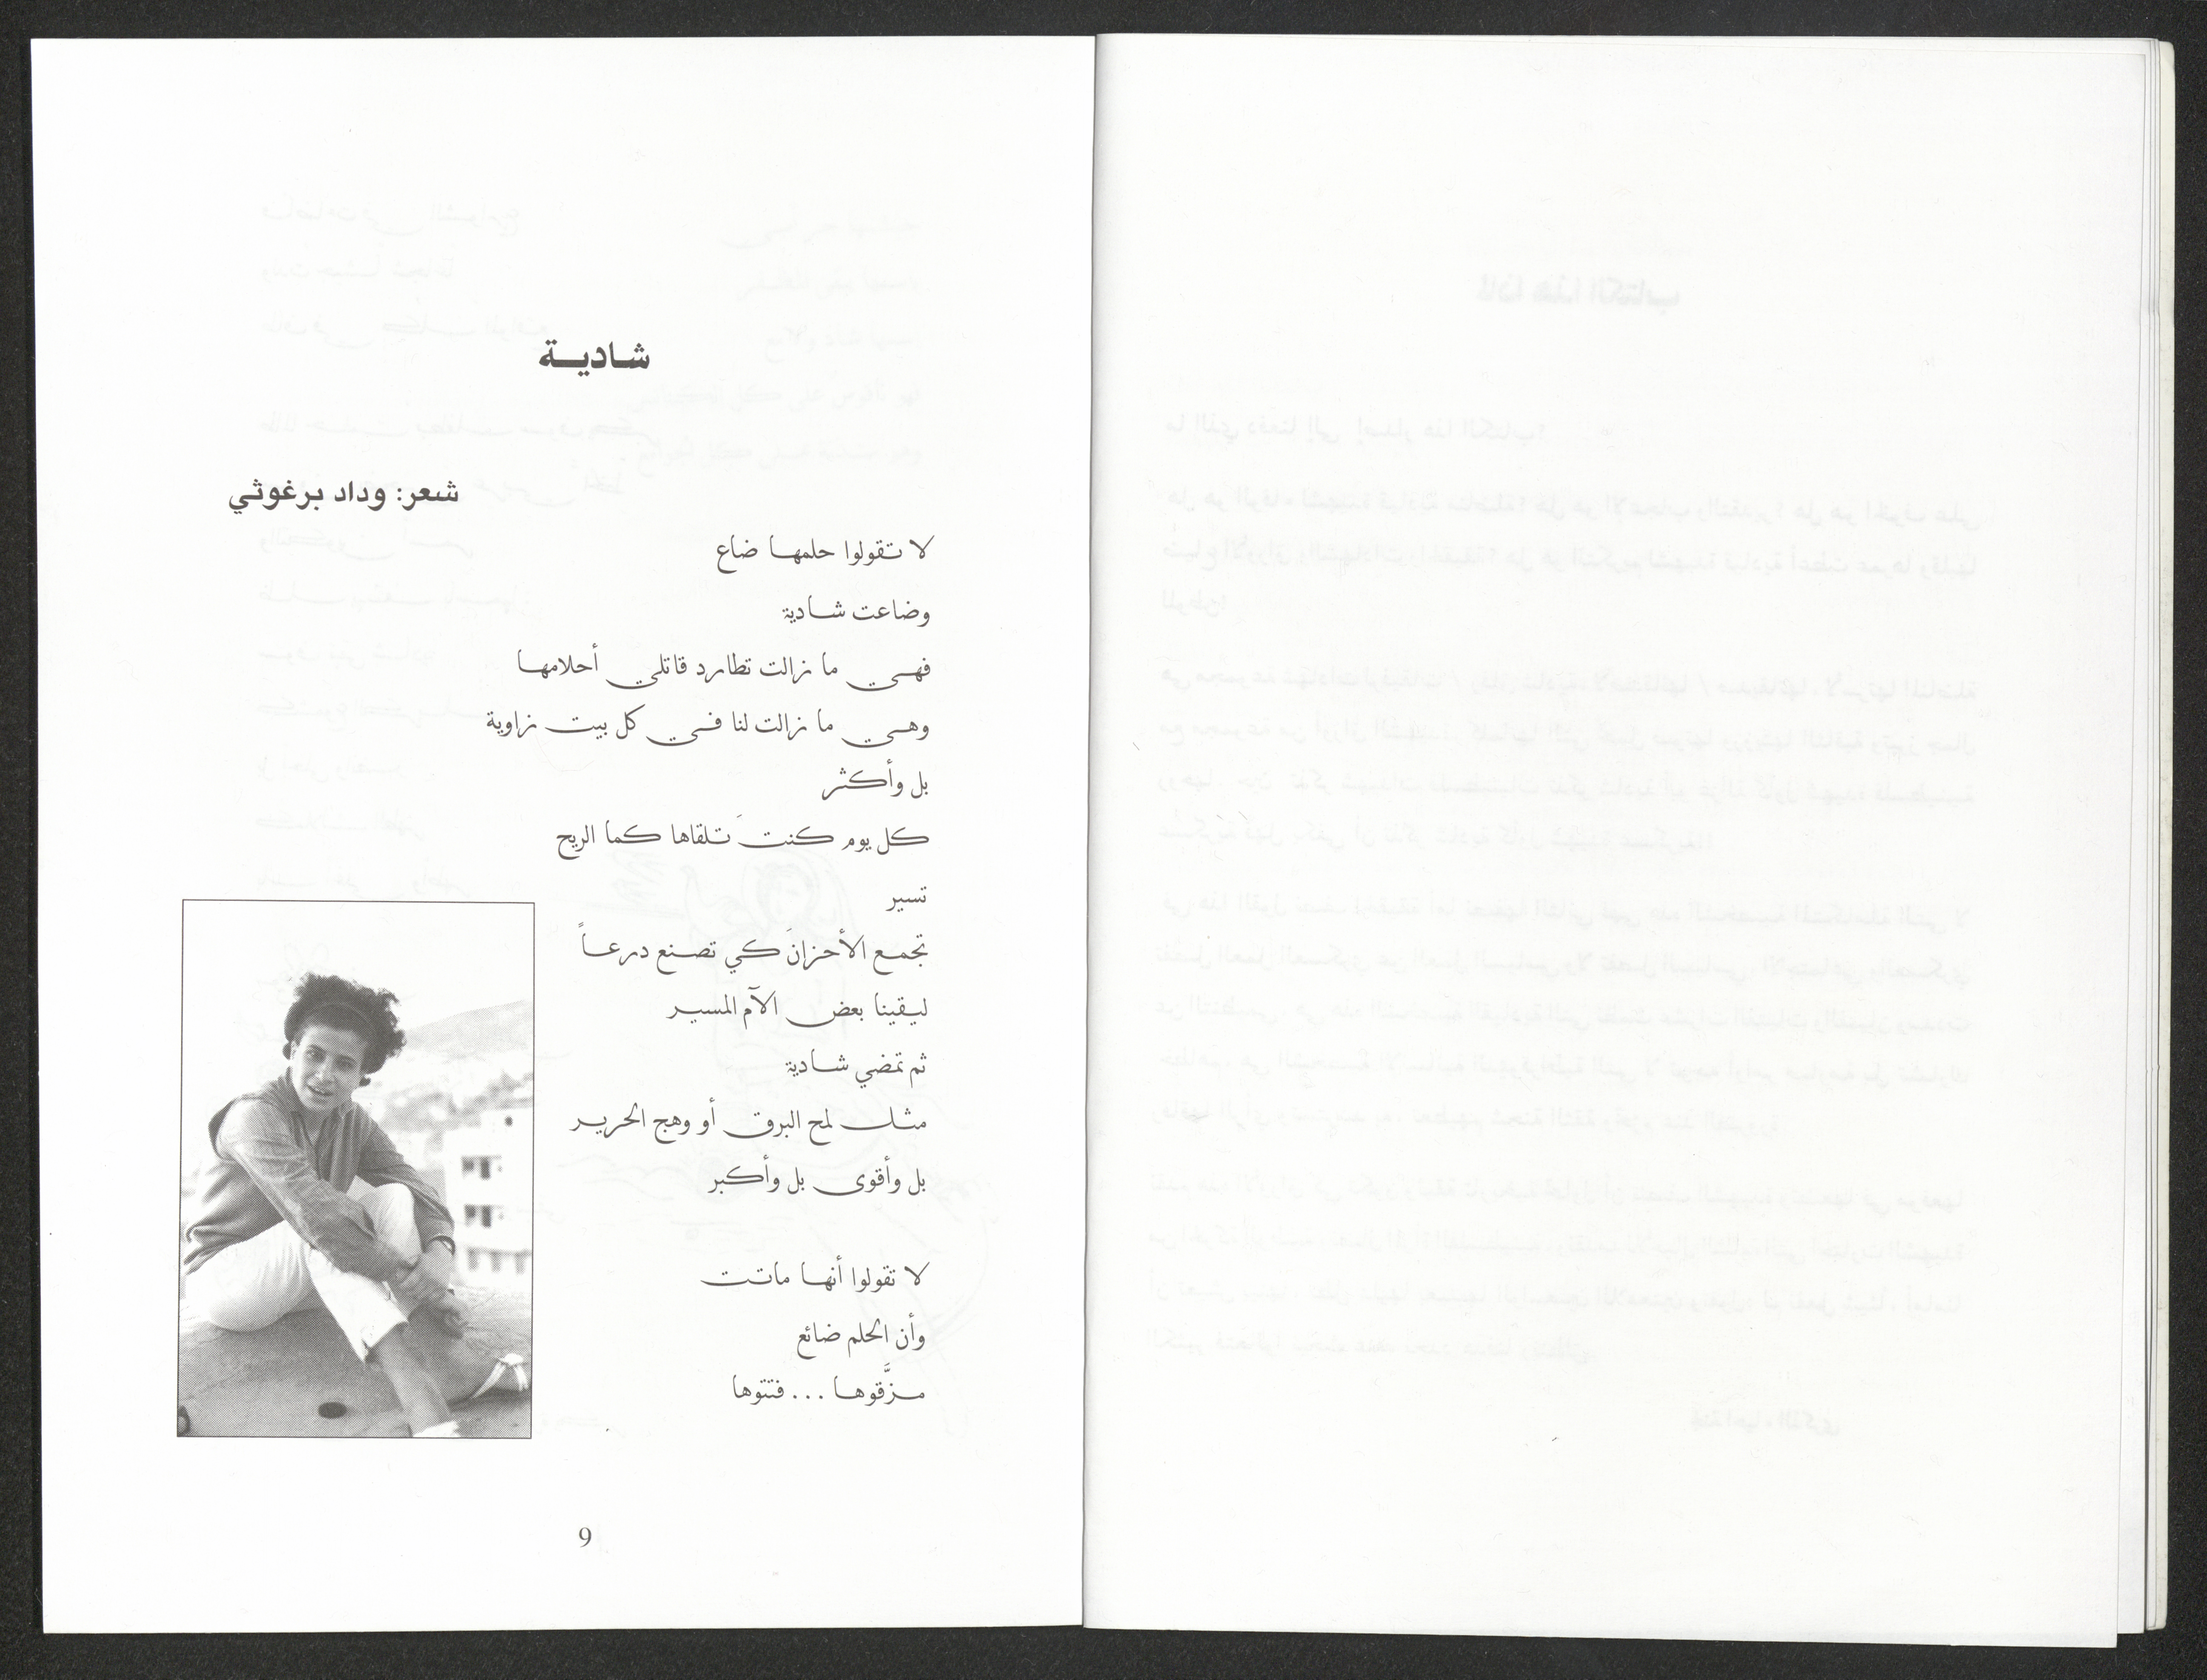 شادية
شعر: وداد برغوثي
لا تقولوا حلمها ضاع
وضاعت شادية
فهي ما زالت تطارد قاتلي أحلامها
وهي ما زالت لنا في كل بيت زاوية
بل وأكثر
كل يوم كنتَ تلقاها كما الريح
تسير
تجمع الأحزانَ كي تصنع درعاً
ليقينا بعض الآم المسير
ثم تمضي شادية
مثل لمح البرق أو وهج الحرير
بل وأقوى بل وأكبر
لا تقولوا أنها ماتت
وأن الحلم ضائع
مزَّقوها ... فتتوها
9